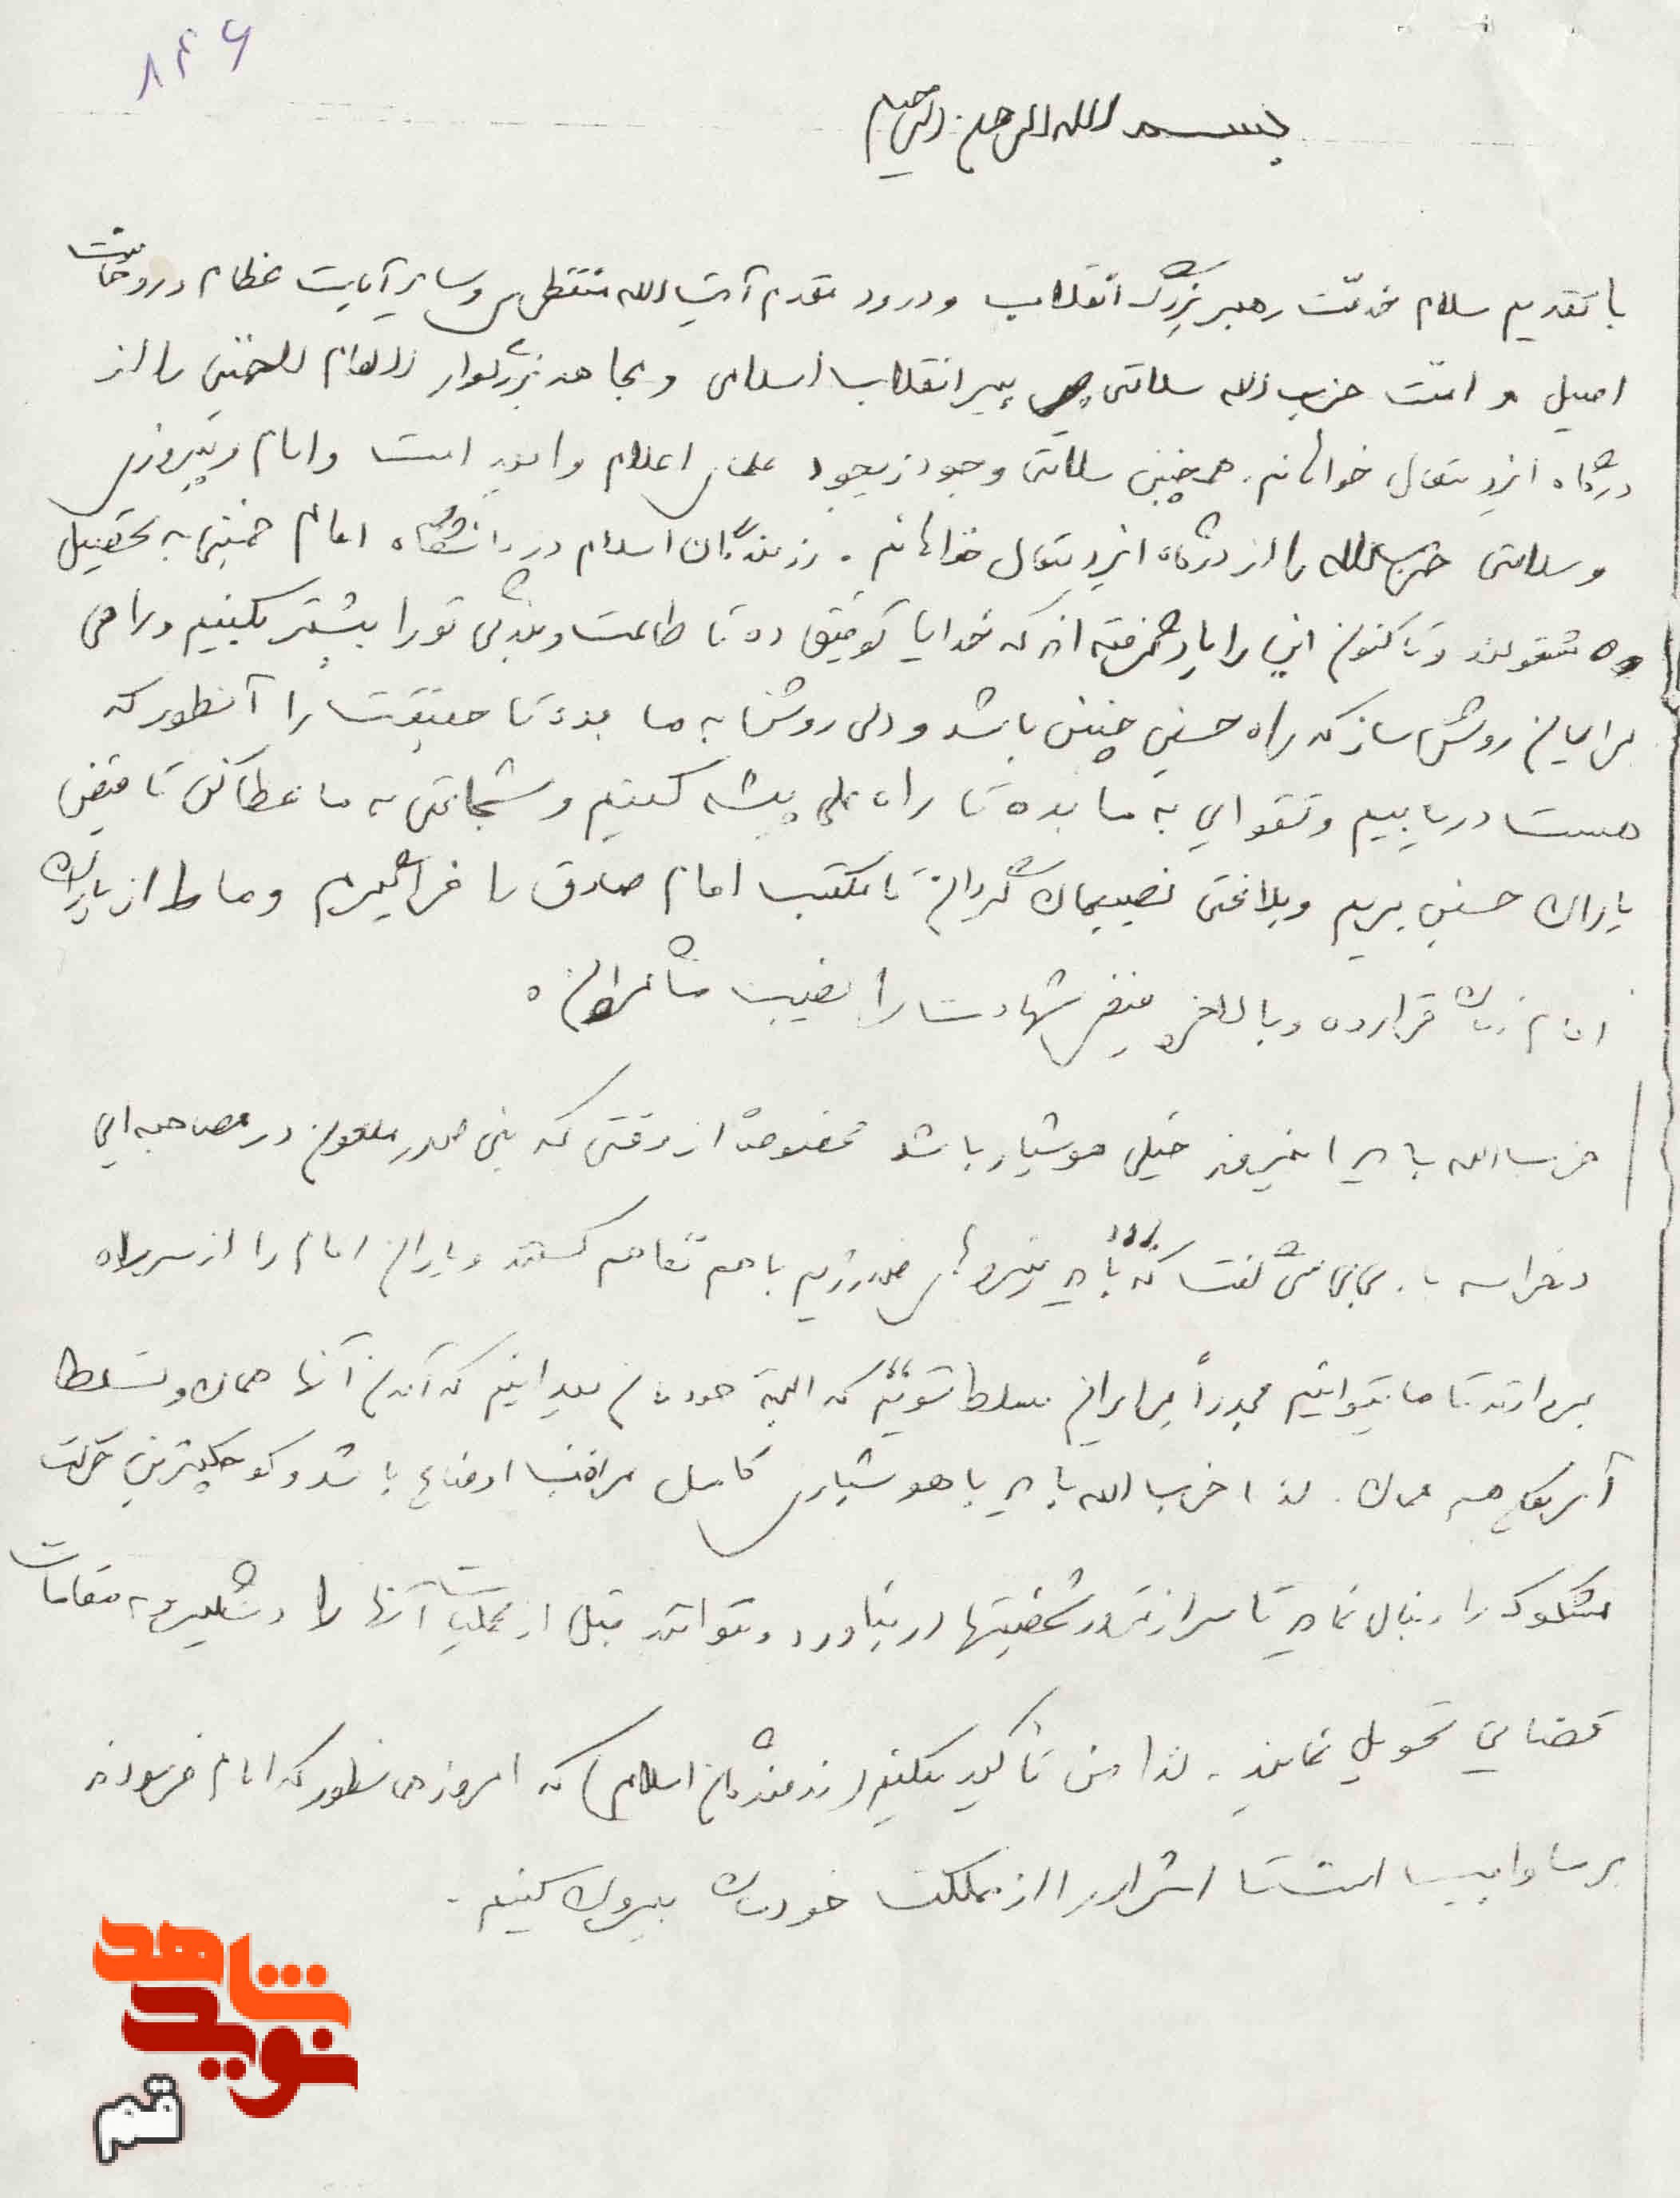 ۸۴۶
بسمه الله الرحمن الرحیم
با تقدیم سلام خدمت رهبر بزرگ انقلاب و درود بقدم آیت الله منتظری و سایر آیات عظام و روحانیت
اصیل و امت حزب الله سلامتی پیر انقلاب اسلامی و مجاهد بزرگوار امام الخمینی را از
درگاه ایزد متعال خواهانم. همچنین سلامتی وجود علمای اعلام و امید امت و امام و پیروزی
و سلامتی حزب الله را از درگاه ایزد متعال خواهانم. رزمندگان اسلام در دانشگاه امام خمینی به تحصیل
مشغولند و تاکنون این را یاد گرفته اند که خدایا توفیق ده تا طاعت و بندگی تو را بیشتر بکنیم و راهی
برایمان روشن ساز که راه حسین چنین باشد و دلی روشن به ما بده تا حقیقت را آنطور که
هست دریابیم و تقوایی به ما بده تا راه علی پیشه کنیم و شجاعتی به ما عطا کن تا فیض
یاران حسین بریم و بلاغتی نصیبمان گردان تا مکتب امام صادق را فراگیریم و ما را از یاران
امام زمان قرار ده و بالاخره فیض شهادت را نصیب ما گردان.
حزب الله باید امروز خیلی هوشیار باشد مخصوصاً از وقتی که بنی صدر ملعون در مصاحبه ایی
در فرانسه با گفت که باید نیروهای ضد رژیم با هم تفاهم کنند و یاران امام را از سر راه
بردارند تا ما بتوانیم مجدداً بر ایران مسلط شویم که البته خودمان میدانیم که آمدن آنها همان و تسلط
آمریکا هم همان. لذا حزب الله باید با هوشیاری کامل مراقب اوضاع باشد و کوچکترین حرکت
مشکوک را دنبال نماید تا سر از ترور شخصیتها در نیاورد و بتوانند قبل از عملیات آنها را دستگیر و به مقامات
قضایی تحویل نمایند. لذا من تأکید میکنم (رزمندگان اسلام) که امروز همانطور که امام فرمودند
بر ما واجب است تا اشرار را از مملکت خودمان بیرون کنیم.
نوید شاهد
قم